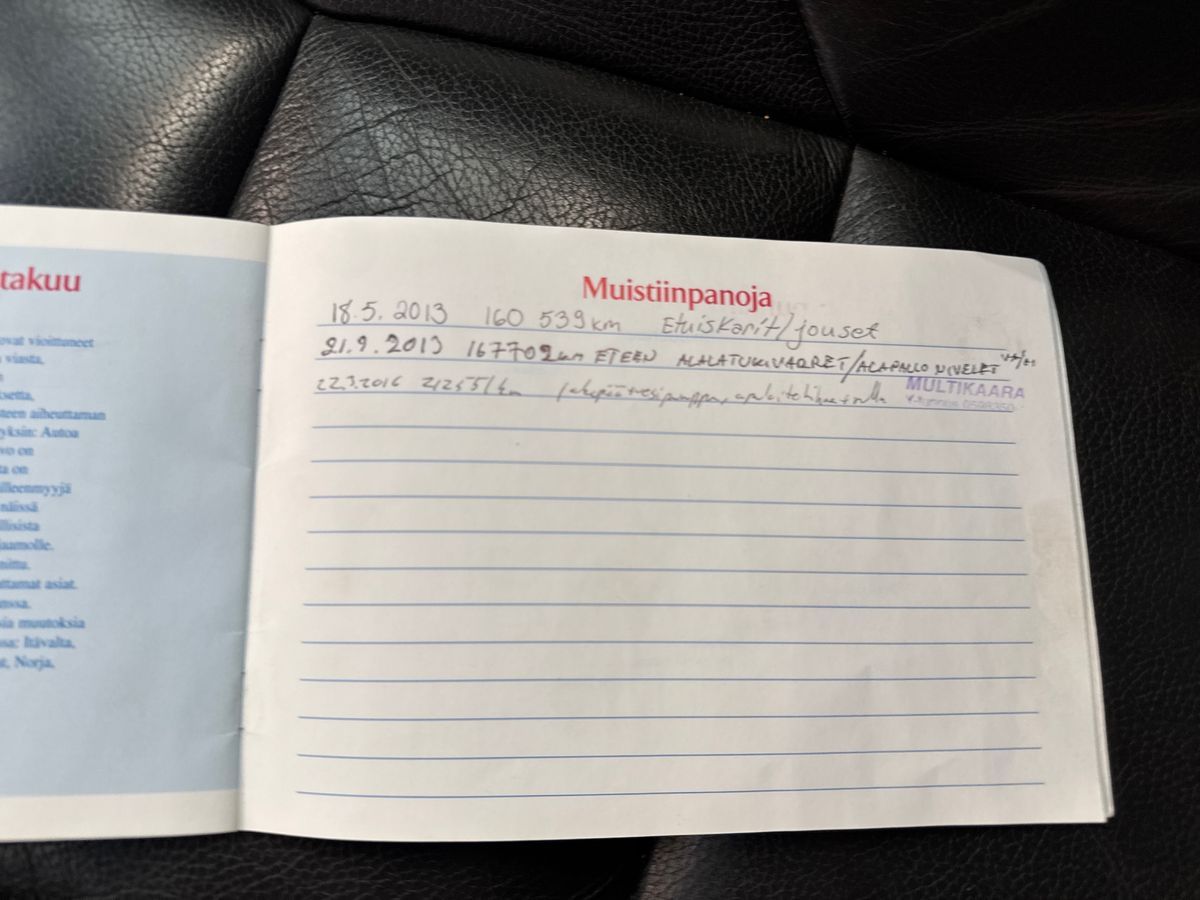 takuu
ovat vioittuneet
viasta,
ksetta,
teen aiheuttaman
yksin: Autoa
vo on
ta on
illeenmyyjä
näissä
llisista
aamolle.
nnittu.
ttamat asiat.
nssa.
sia muutoksia
ssa: Itävalta,
t, Norja,
Muistiinpanoja
18.5.2013 160 539 km Etuiskarit/jouset
21.9.2013 167702km ETEEN ALALATUKIVARRET/ALAPALLO NIVELET
22.3.2016 km
MULTIKAARA
Y-tunnus